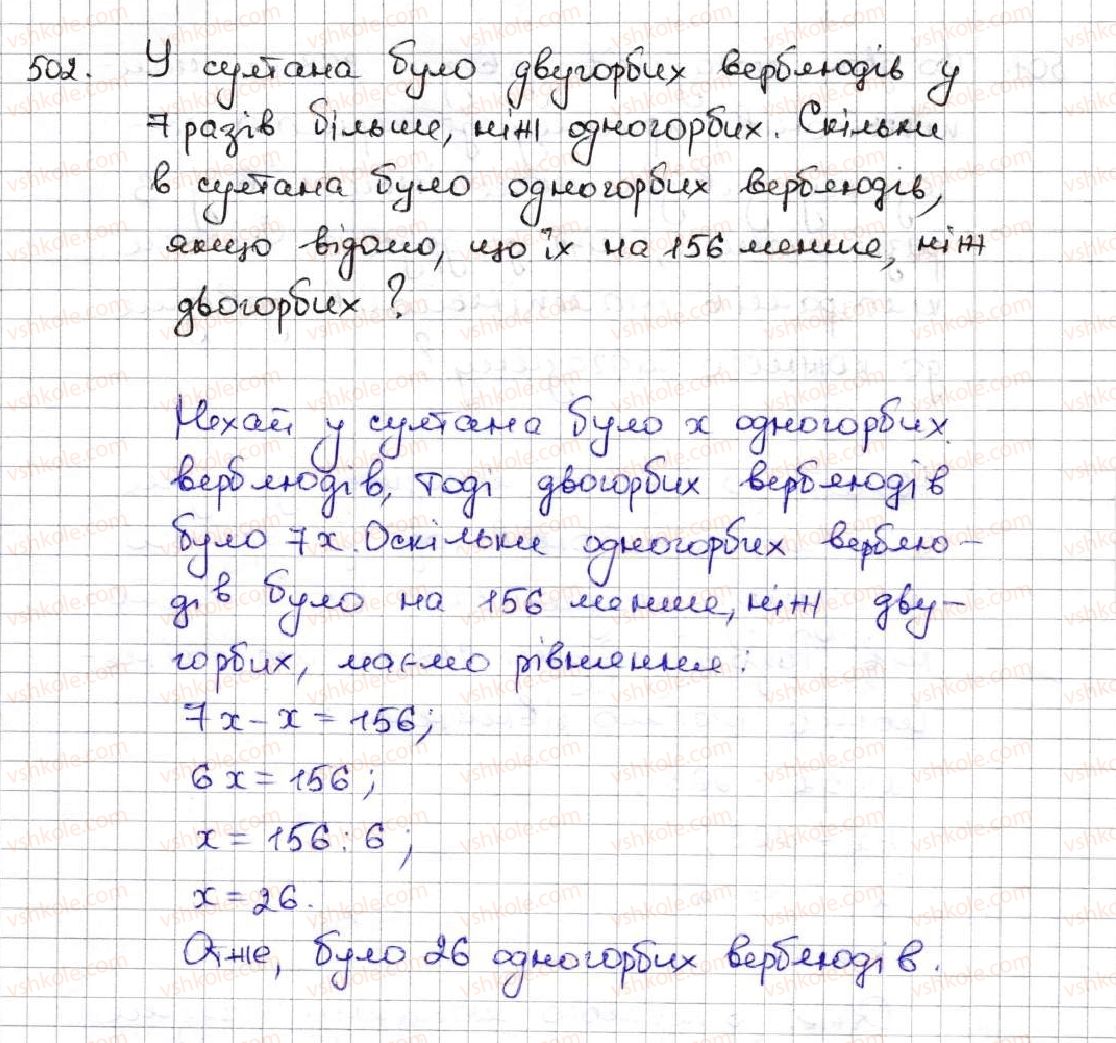 502. У султана було двугорбих верблюдів у
7 разів більше, ніж одногорбих. Скільки
в султана було одногорбих верблюдів,
якщо відомо, що їх на 156 менше, ніж
двогорбих?
Нехай у султана було х одногорбих
верблюдів, тоді двогорбих верблюдів
було 7х. Оскільки одногорбих верблю-
дів було на 156 менше, ніж дву-
горбих, маємо рівняння:
7х - х = 156;
6х = 156;
х = 156 : 6;
х = 26.
Отже, було 26 одногорбих верблюдів.